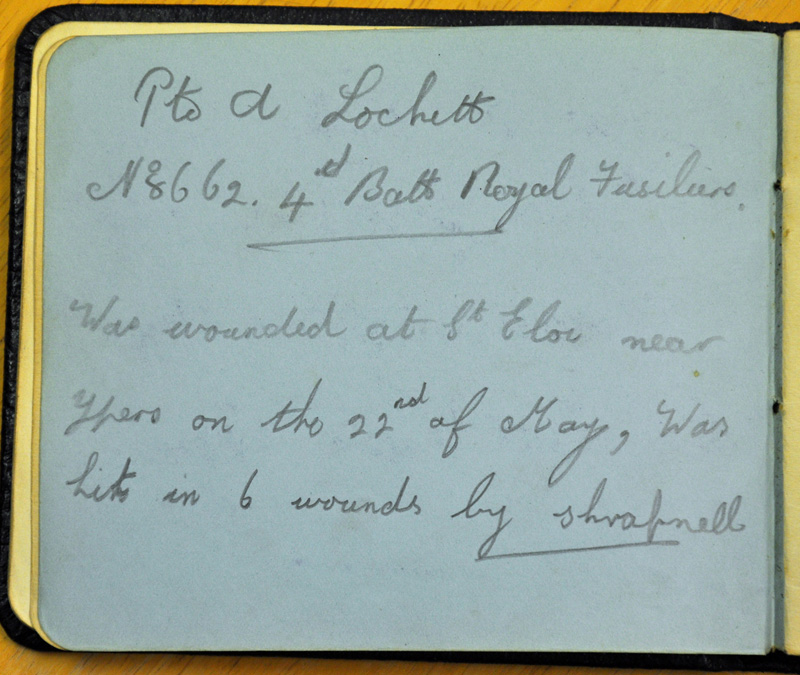 Pte A Lockett
No 8662. 4rd Batt Royal Fusiliers.
Was wounded at St Eloi near
Ypers on the 22nd of May, Was
hit in 6 wounds by shrapnell